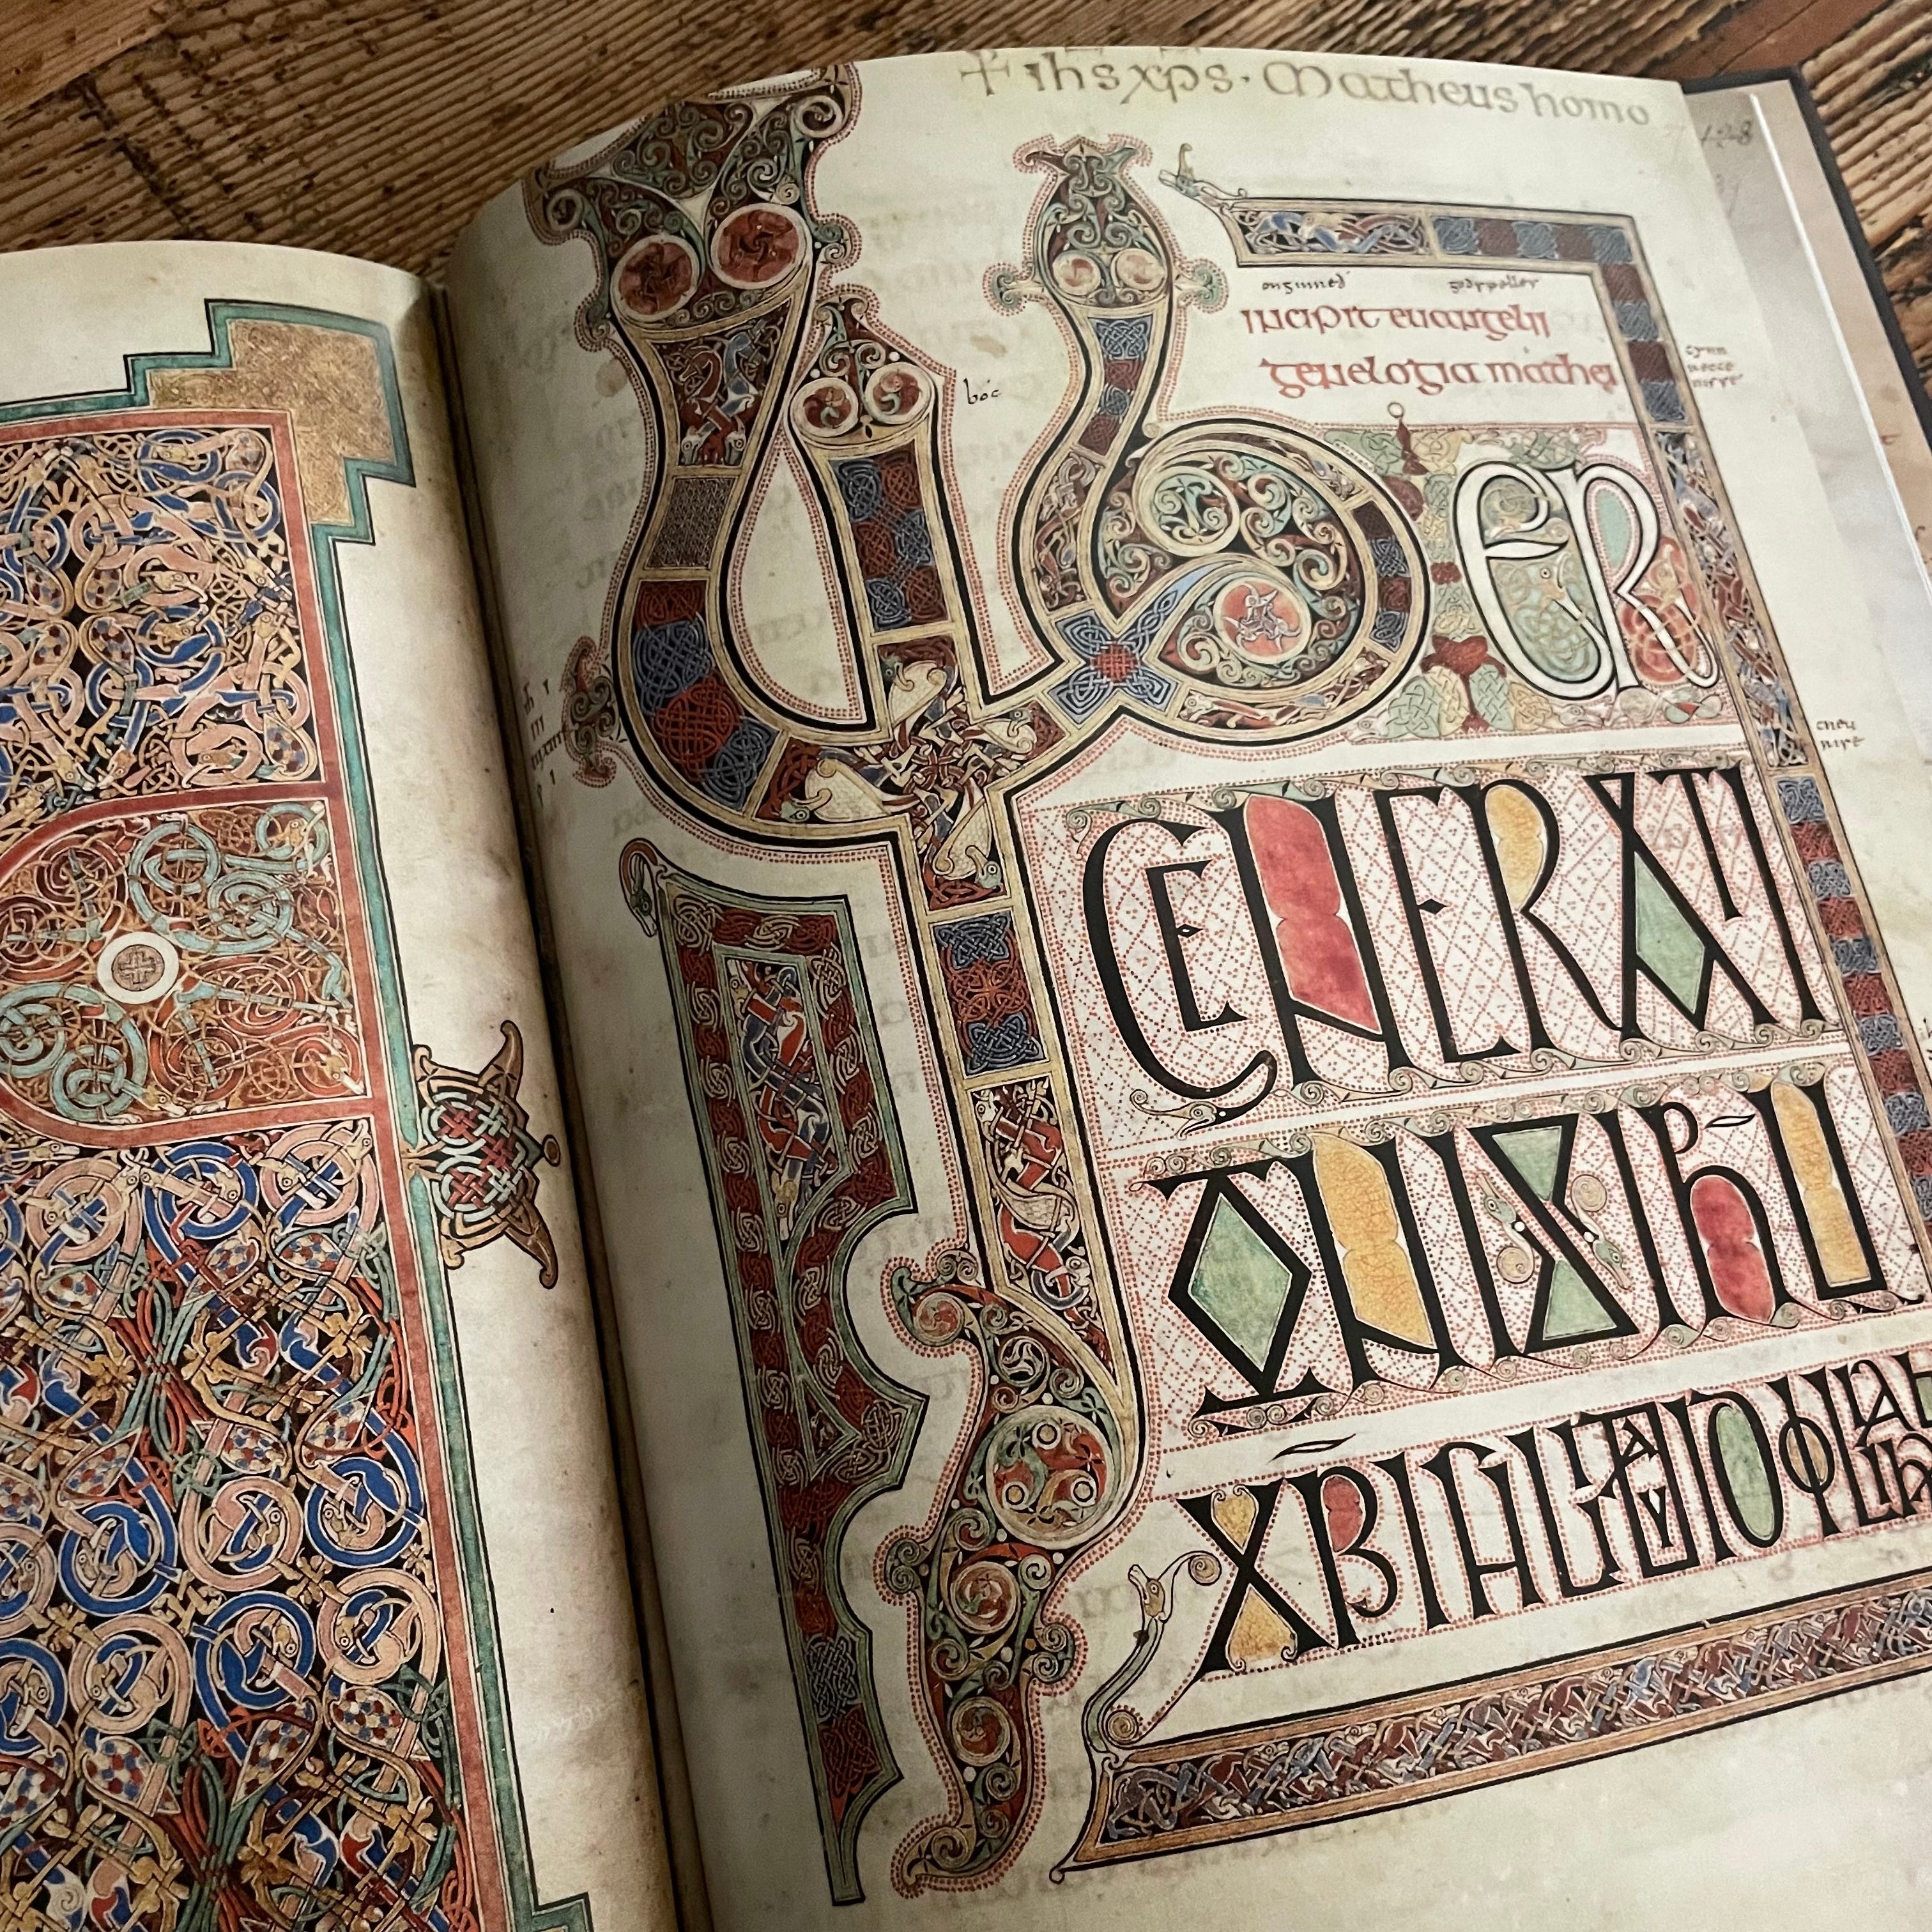 + ihs xps · Matheus homo
onginned godspelles
incipit euangelii
genelogia mathei
boc
LIBER
GENERATI
ONIS IHU
XPI FILII DAUID FILII ABRAHAM